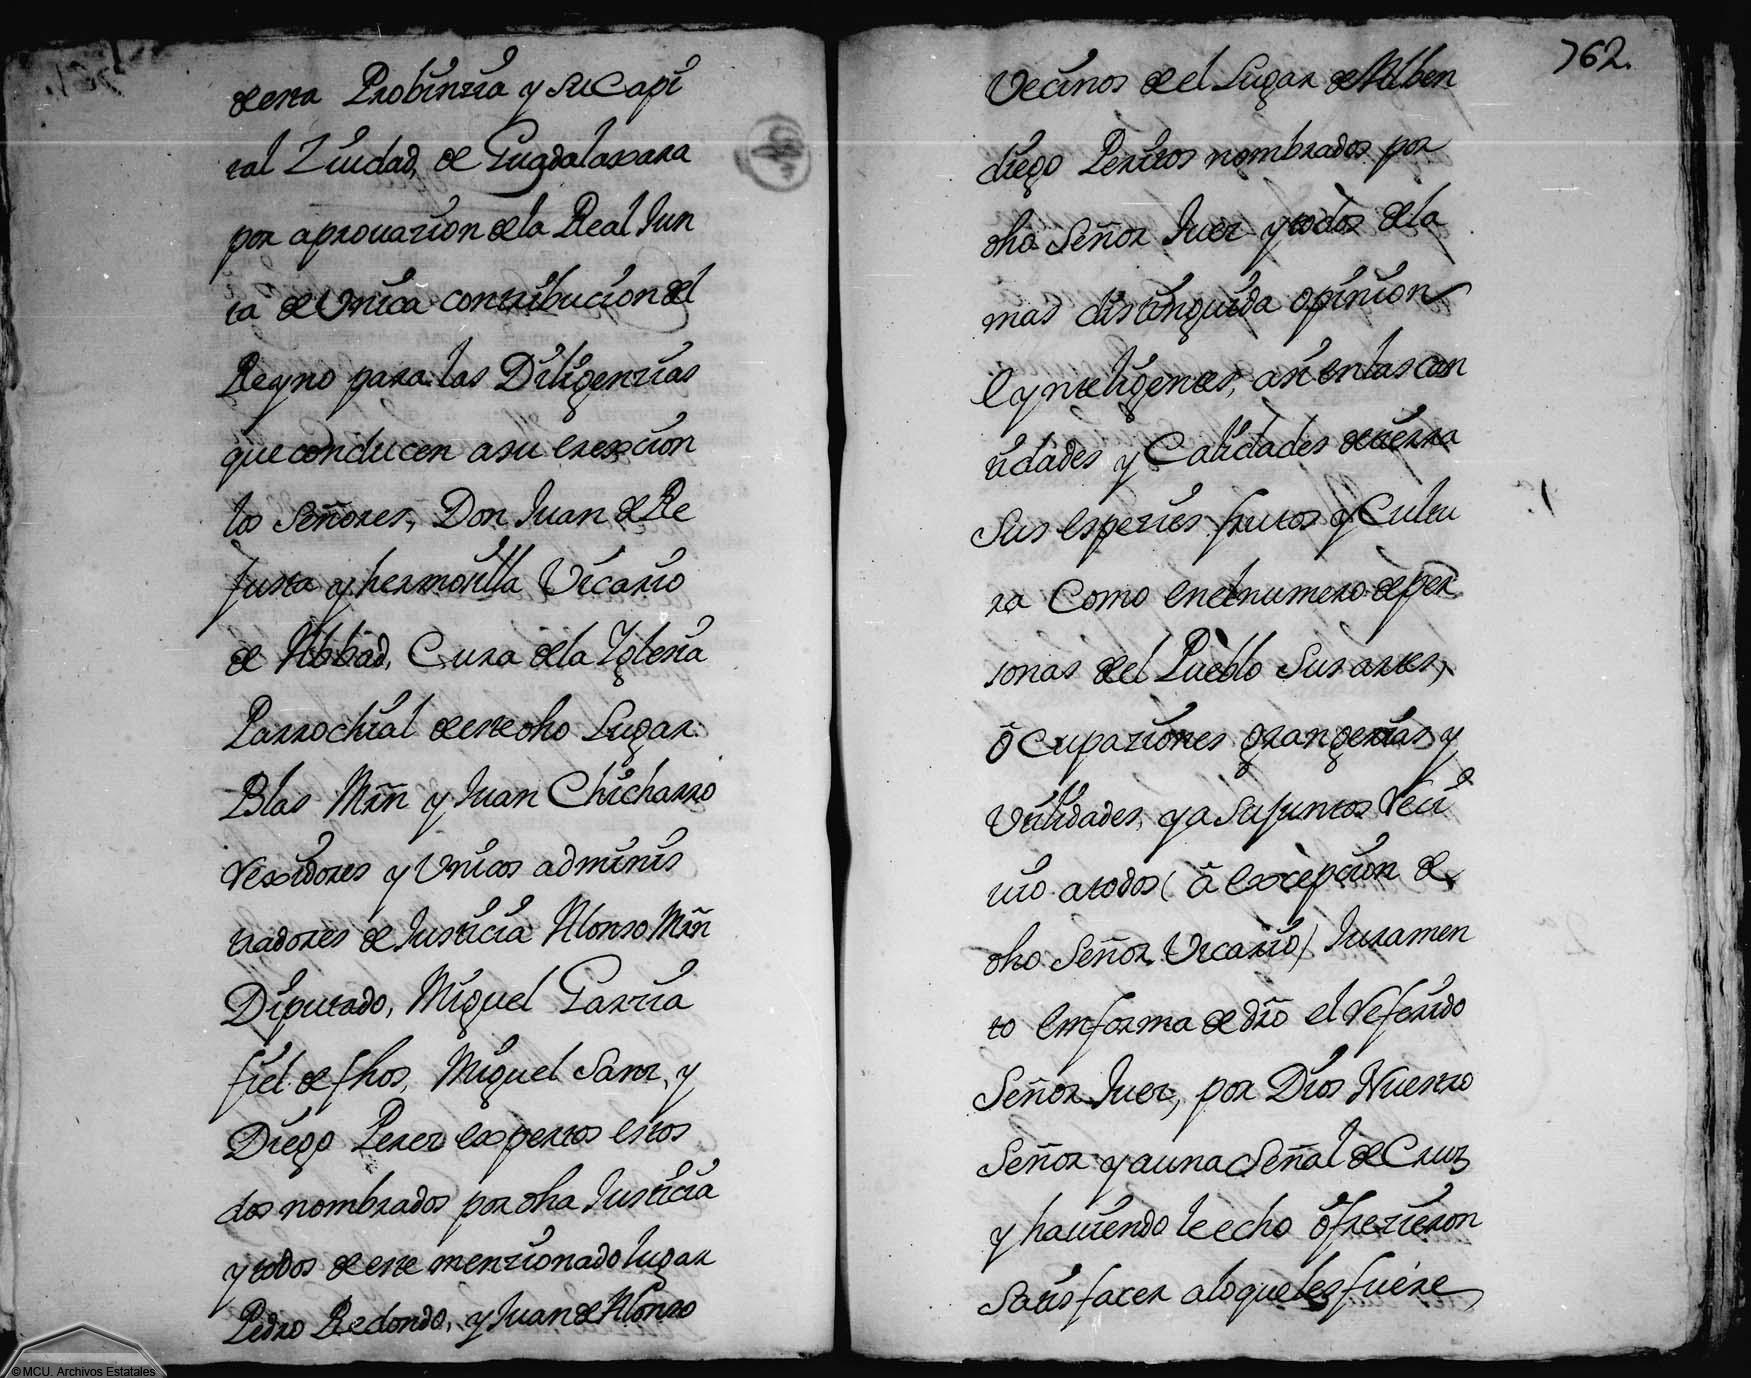 de esta Probinzia y su Capi
tal Ziudad, de Guadalaxara
por aprouazion de la Real Jun
ta de Vnica contribucion del
Reyno para las Diligenzias
que conducen a su erexcion
los Señores, Don Juan de Re
justa y hermosilla Vicario
de Abbad, Cura de la Yglesia
Parrochial de este dho Lugar
Blas Mrñ y Juan Chicharro
Rexidores y Vnicos adminis
tradores de Justicia Alonso Mrñ
Diputado, Miguel Garzia
fiel de fhos, Miguel Sanz, y
Diego Perez expertos estos
dos nombrados por dha Justicia
y todos de este menzionado lugar
Pedro Redondo, y Juan de Alonso
762.
Vecinos de el Lugar de Alben
diego Peritos nombrados por
dho Señor Juez y todos de la
mas distinguida opinion
e ynteligentes, asi en las can
tidades y Calidades de tierra
Sus espezies frutos y Cultu
ra Como en el numero de per
sonas de el Pueblo Sus artes,
ôcupaziones grangerias y
Vtilidades, y a Sus juntos Reci
uio a todos (â excepcion de
dho Señor Vicario) Juramen
to en forma de dro el Referido
Señor Juez, por Dios Nuestro
Señor y a una Señal de Cruz
y hauiendo le echo ôfrezieron
Satisfacer a lo que les fuere
©MCU. Archivos Estatales